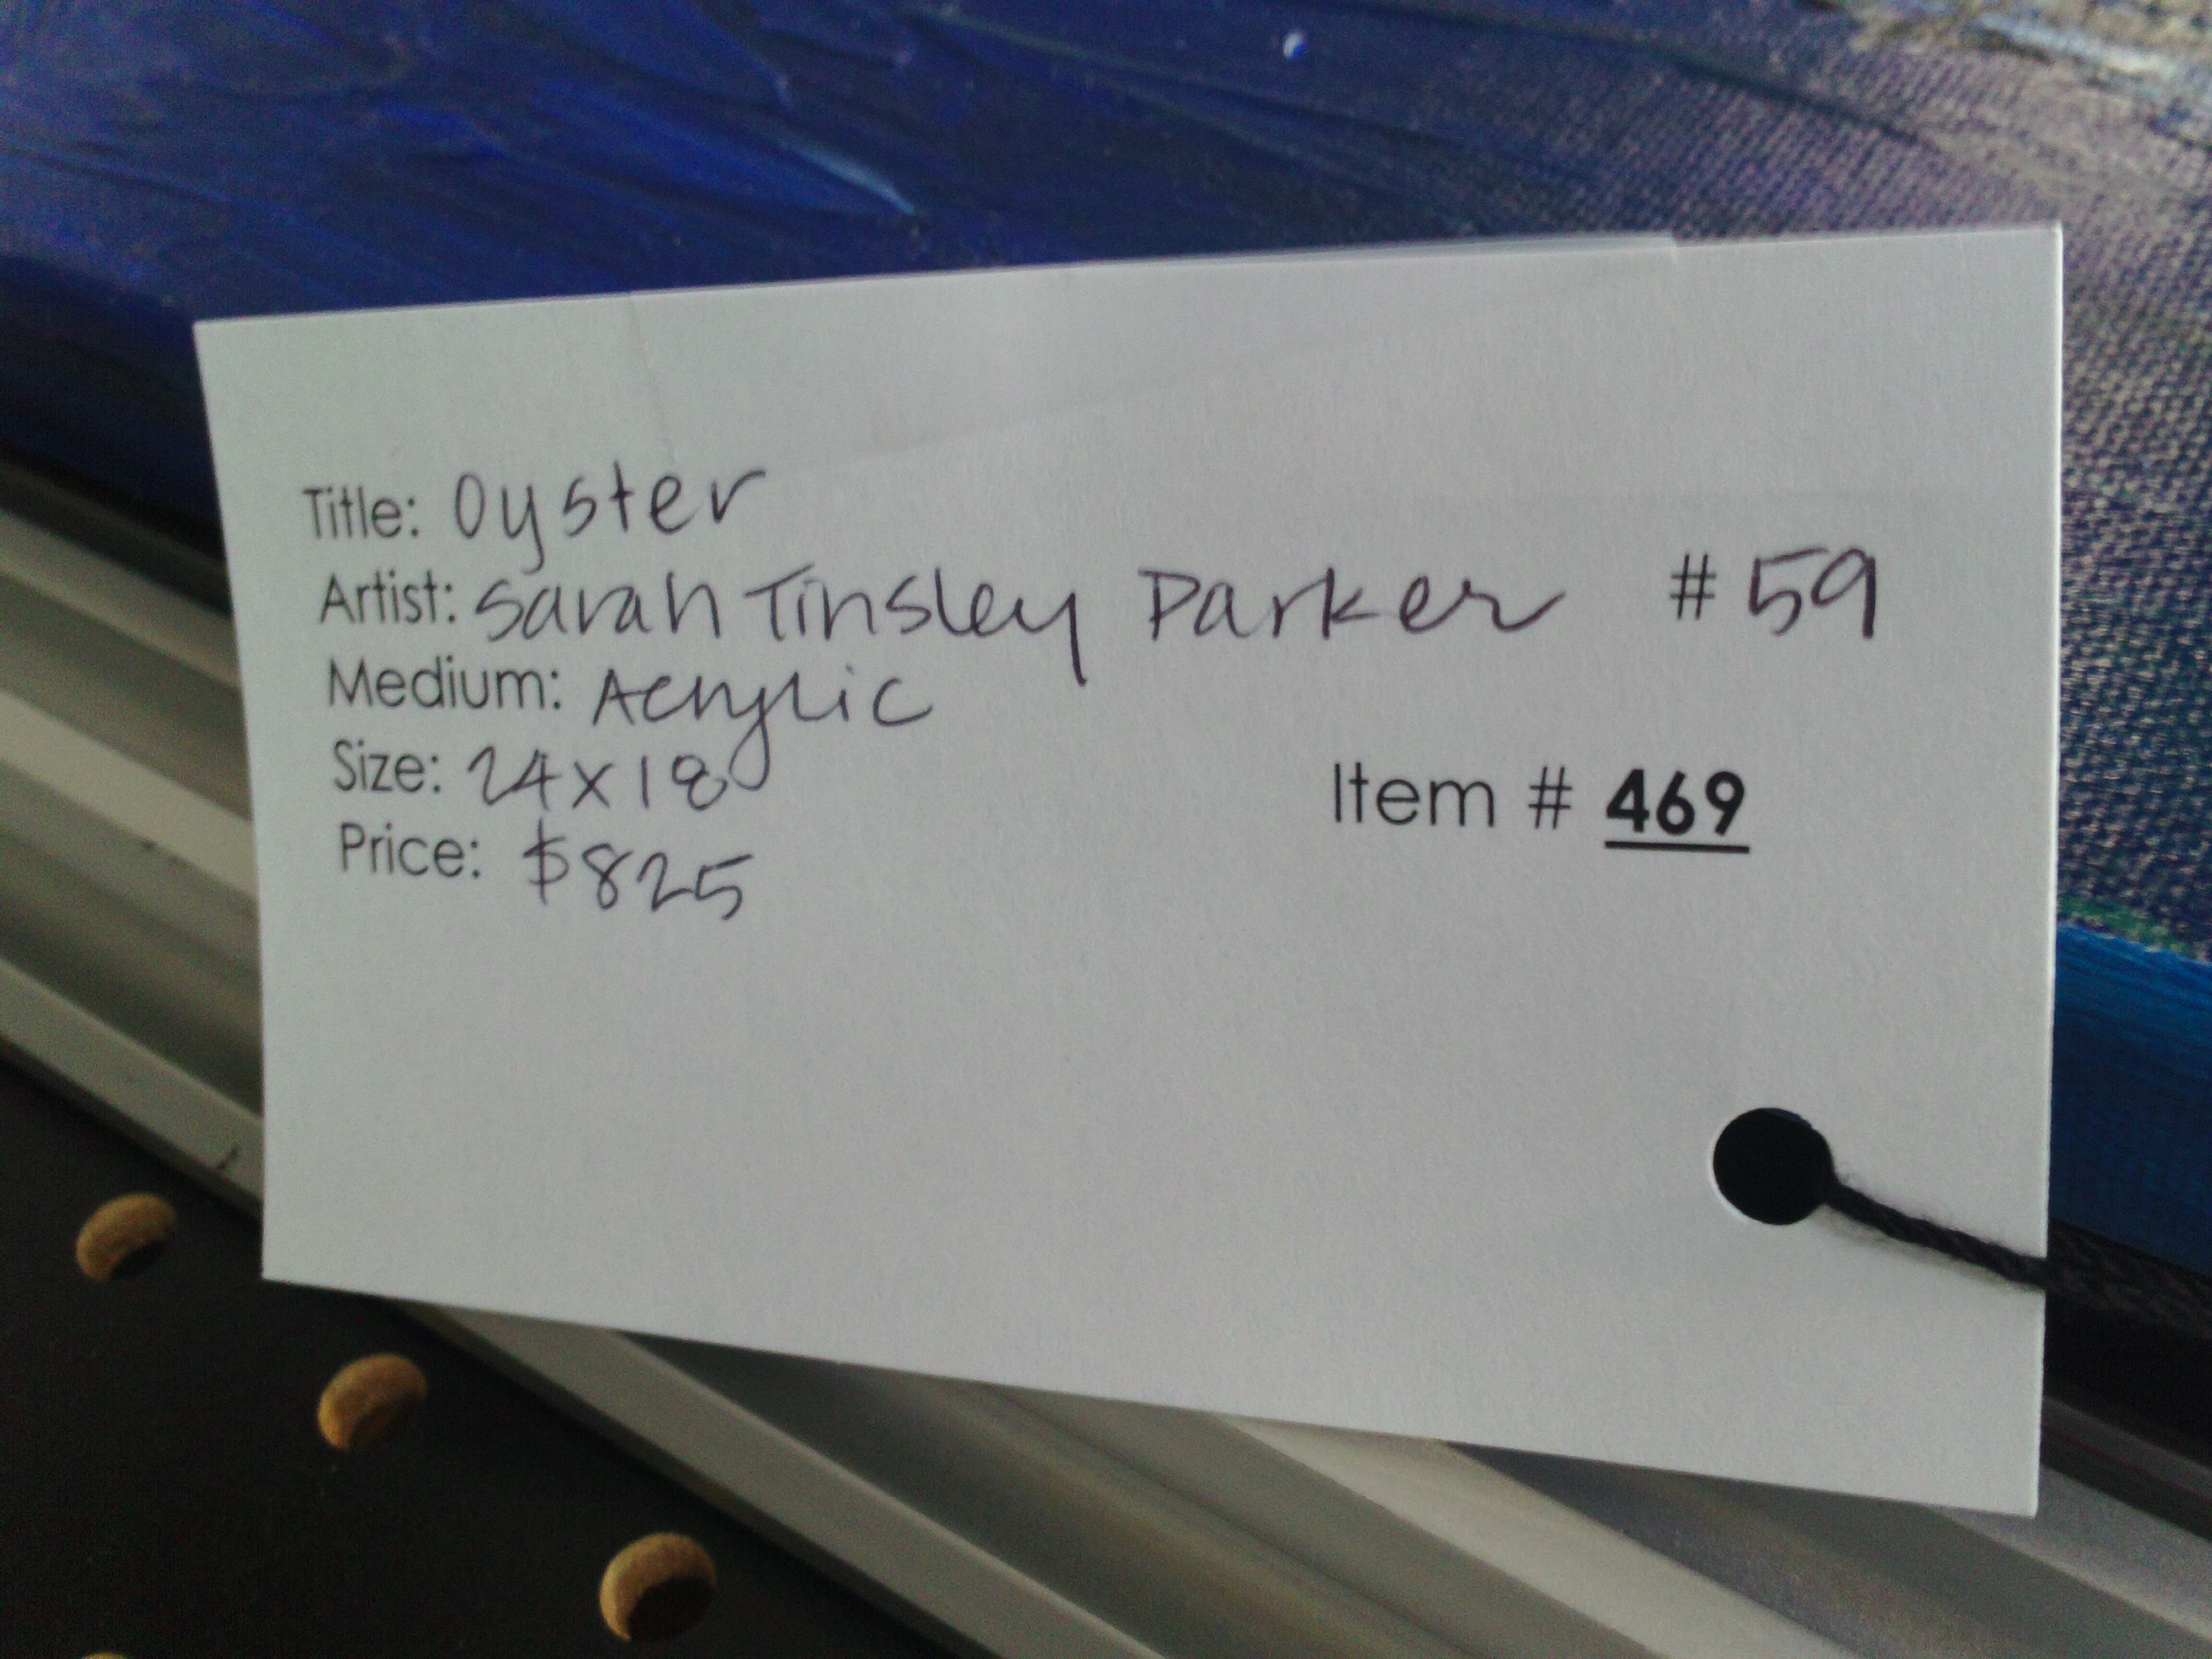 Title: Oyster
Artist: Sarah Tinsley Parker #59
Medium: Acrylic
Size: 24x18
Item # 469
Price: $825